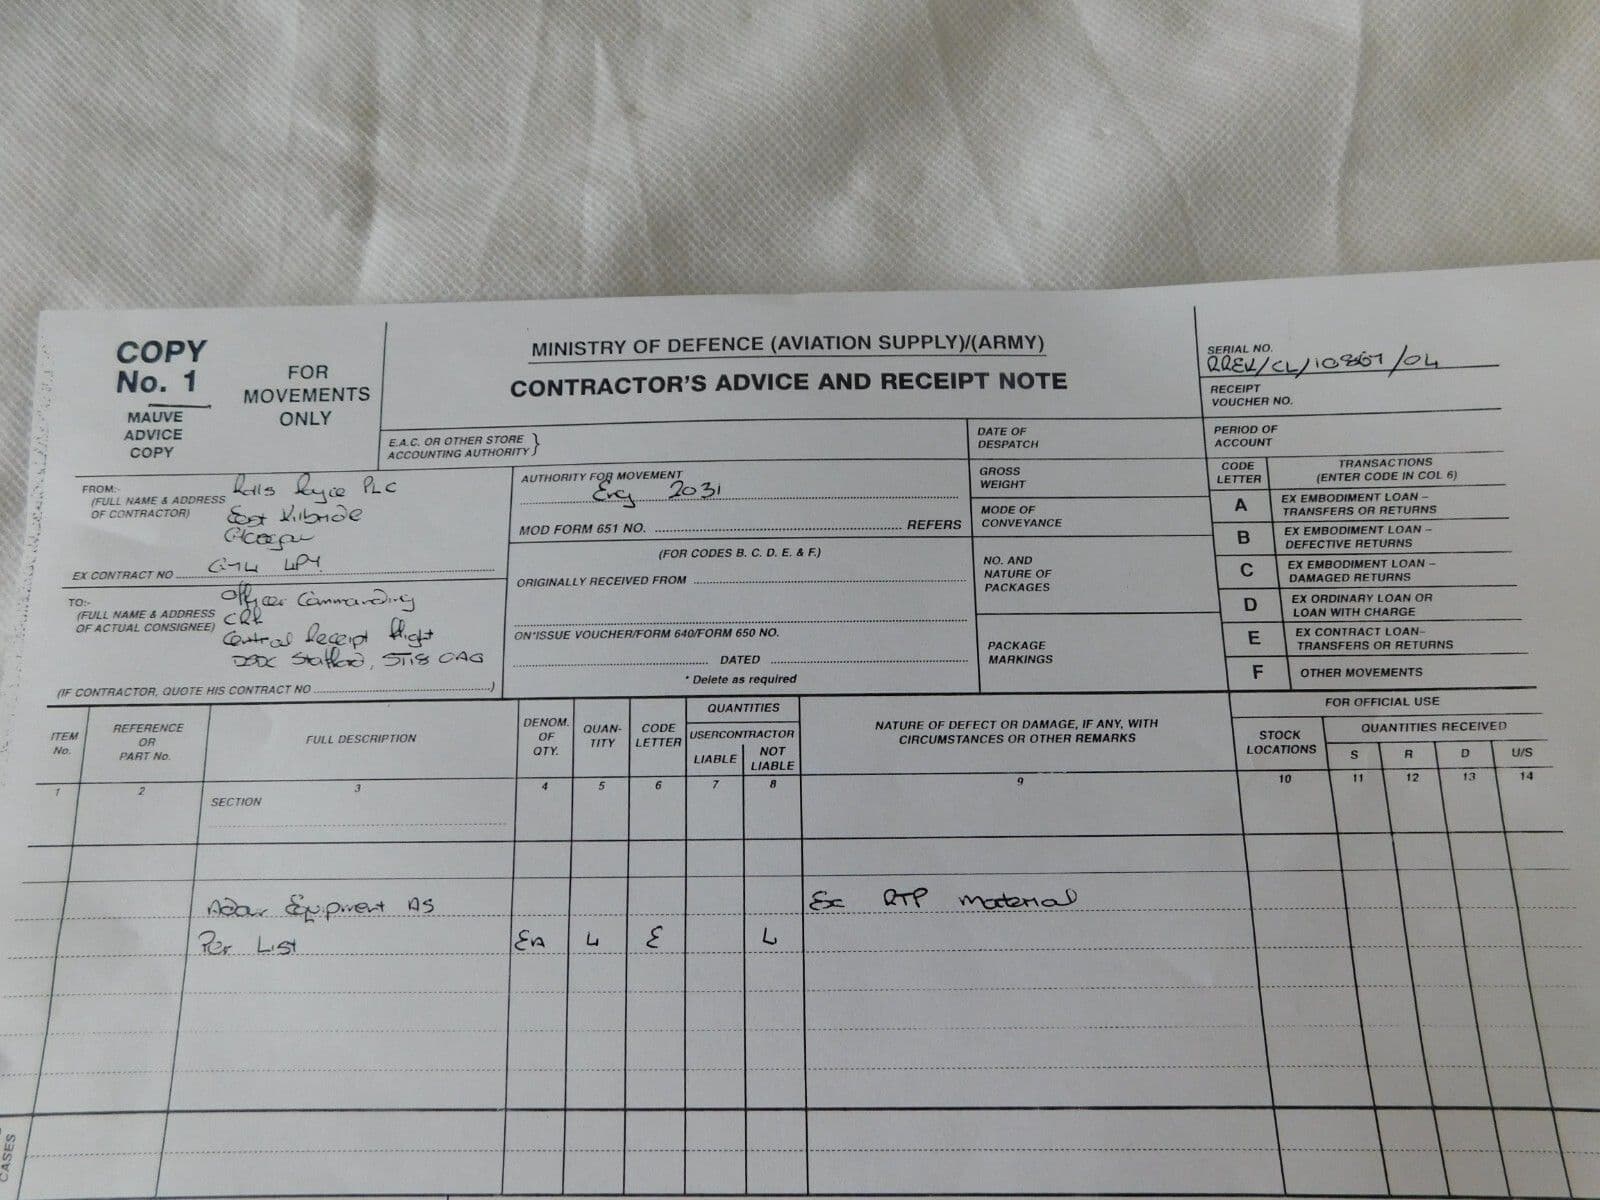 COPY
No. 1
MAUVE
ADVICE
COPY
FOR
MOVEMENTS
ONLY
MINISTRY OF DEFENCE (AVIATION SUPPLY)/(ARMY)
CONTRACTOR'S ADVICE AND RECEIPT NOTE
SERIAL NO.
RREK/CL/10867/04
RECEIPT
VOUCHER NO.
E.A.C. OR OTHER STORE
ACCOUNTING AUTHORITY }
DATE OF
DESPATCH
PERIOD OF
ACCOUNT
FROM:-
(FULL NAME & ADDRESS
OF CONTRACTOR)
Rolls Royce PLC
East Kilbride
Glasgow
G74 4PY
EX CONTRACT NO
AUTHORITY FOR MOVEMENT
Eng 2031
MOD FORM 651 NO. REFERS
GROSS
WEIGHT
MODE OF
CONVEYANCE
CODE
LETTER
TRANSACTIONS
(ENTER CODE IN COL 6)
A EX EMBODIMENT LOAN –
TRANSFERS OR RETURNS
B EX EMBODIMENT LOAN –
DEFECTIVE RETURNS
C EX EMBODIMENT LOAN –
DAMAGED RETURNS
D EX ORDINARY LOAN OR
LOAN WITH CHARGE
E EX CONTRACT LOAN-
TRANSFERS OR RETURNS
F OTHER MOVEMENTS
TO:-
(FULL NAME & ADDRESS
OF ACTUAL CONSIGNEE)
Officer Commanding
CRF
Central Receipt Flight
DSDC Stafford, ST18 0AG
(IF CONTRACTOR, QUOTE HIS CONTRACT NO )
(FOR CODES B. C. D. E. & F.)
ORIGINALLY RECEIVED FROM
ON*ISSUE VOUCHER/FORM 640/FORM 650 NO.
DATED
* Delete as required
NO. AND
NATURE OF
PACKAGES
PACKAGE
MARKINGS
ITEM
No.
REFERENCE
OR
PART No.
FULL DESCRIPTION
DENOM.
OF
QTY.
QUAN-
TITY
CODE
LETTER
QUANTITIES
USERCONTRACTOR
LIABLE
NOT
LIABLE
NATURE OF DEFECT OR DAMAGE, IF ANY, WITH
CIRCUMSTANCES OR OTHER REMARKS
FOR OFFICIAL USE
STOCK
LOCATIONS
QUANTITIES RECEIVED
S R D U/S
1 2 3 4 5 6 7 8 9 10 11 12 13 14
SECTION
Adour Equipment AS Ex RTP material
Per List EA 4 E 4
CASES